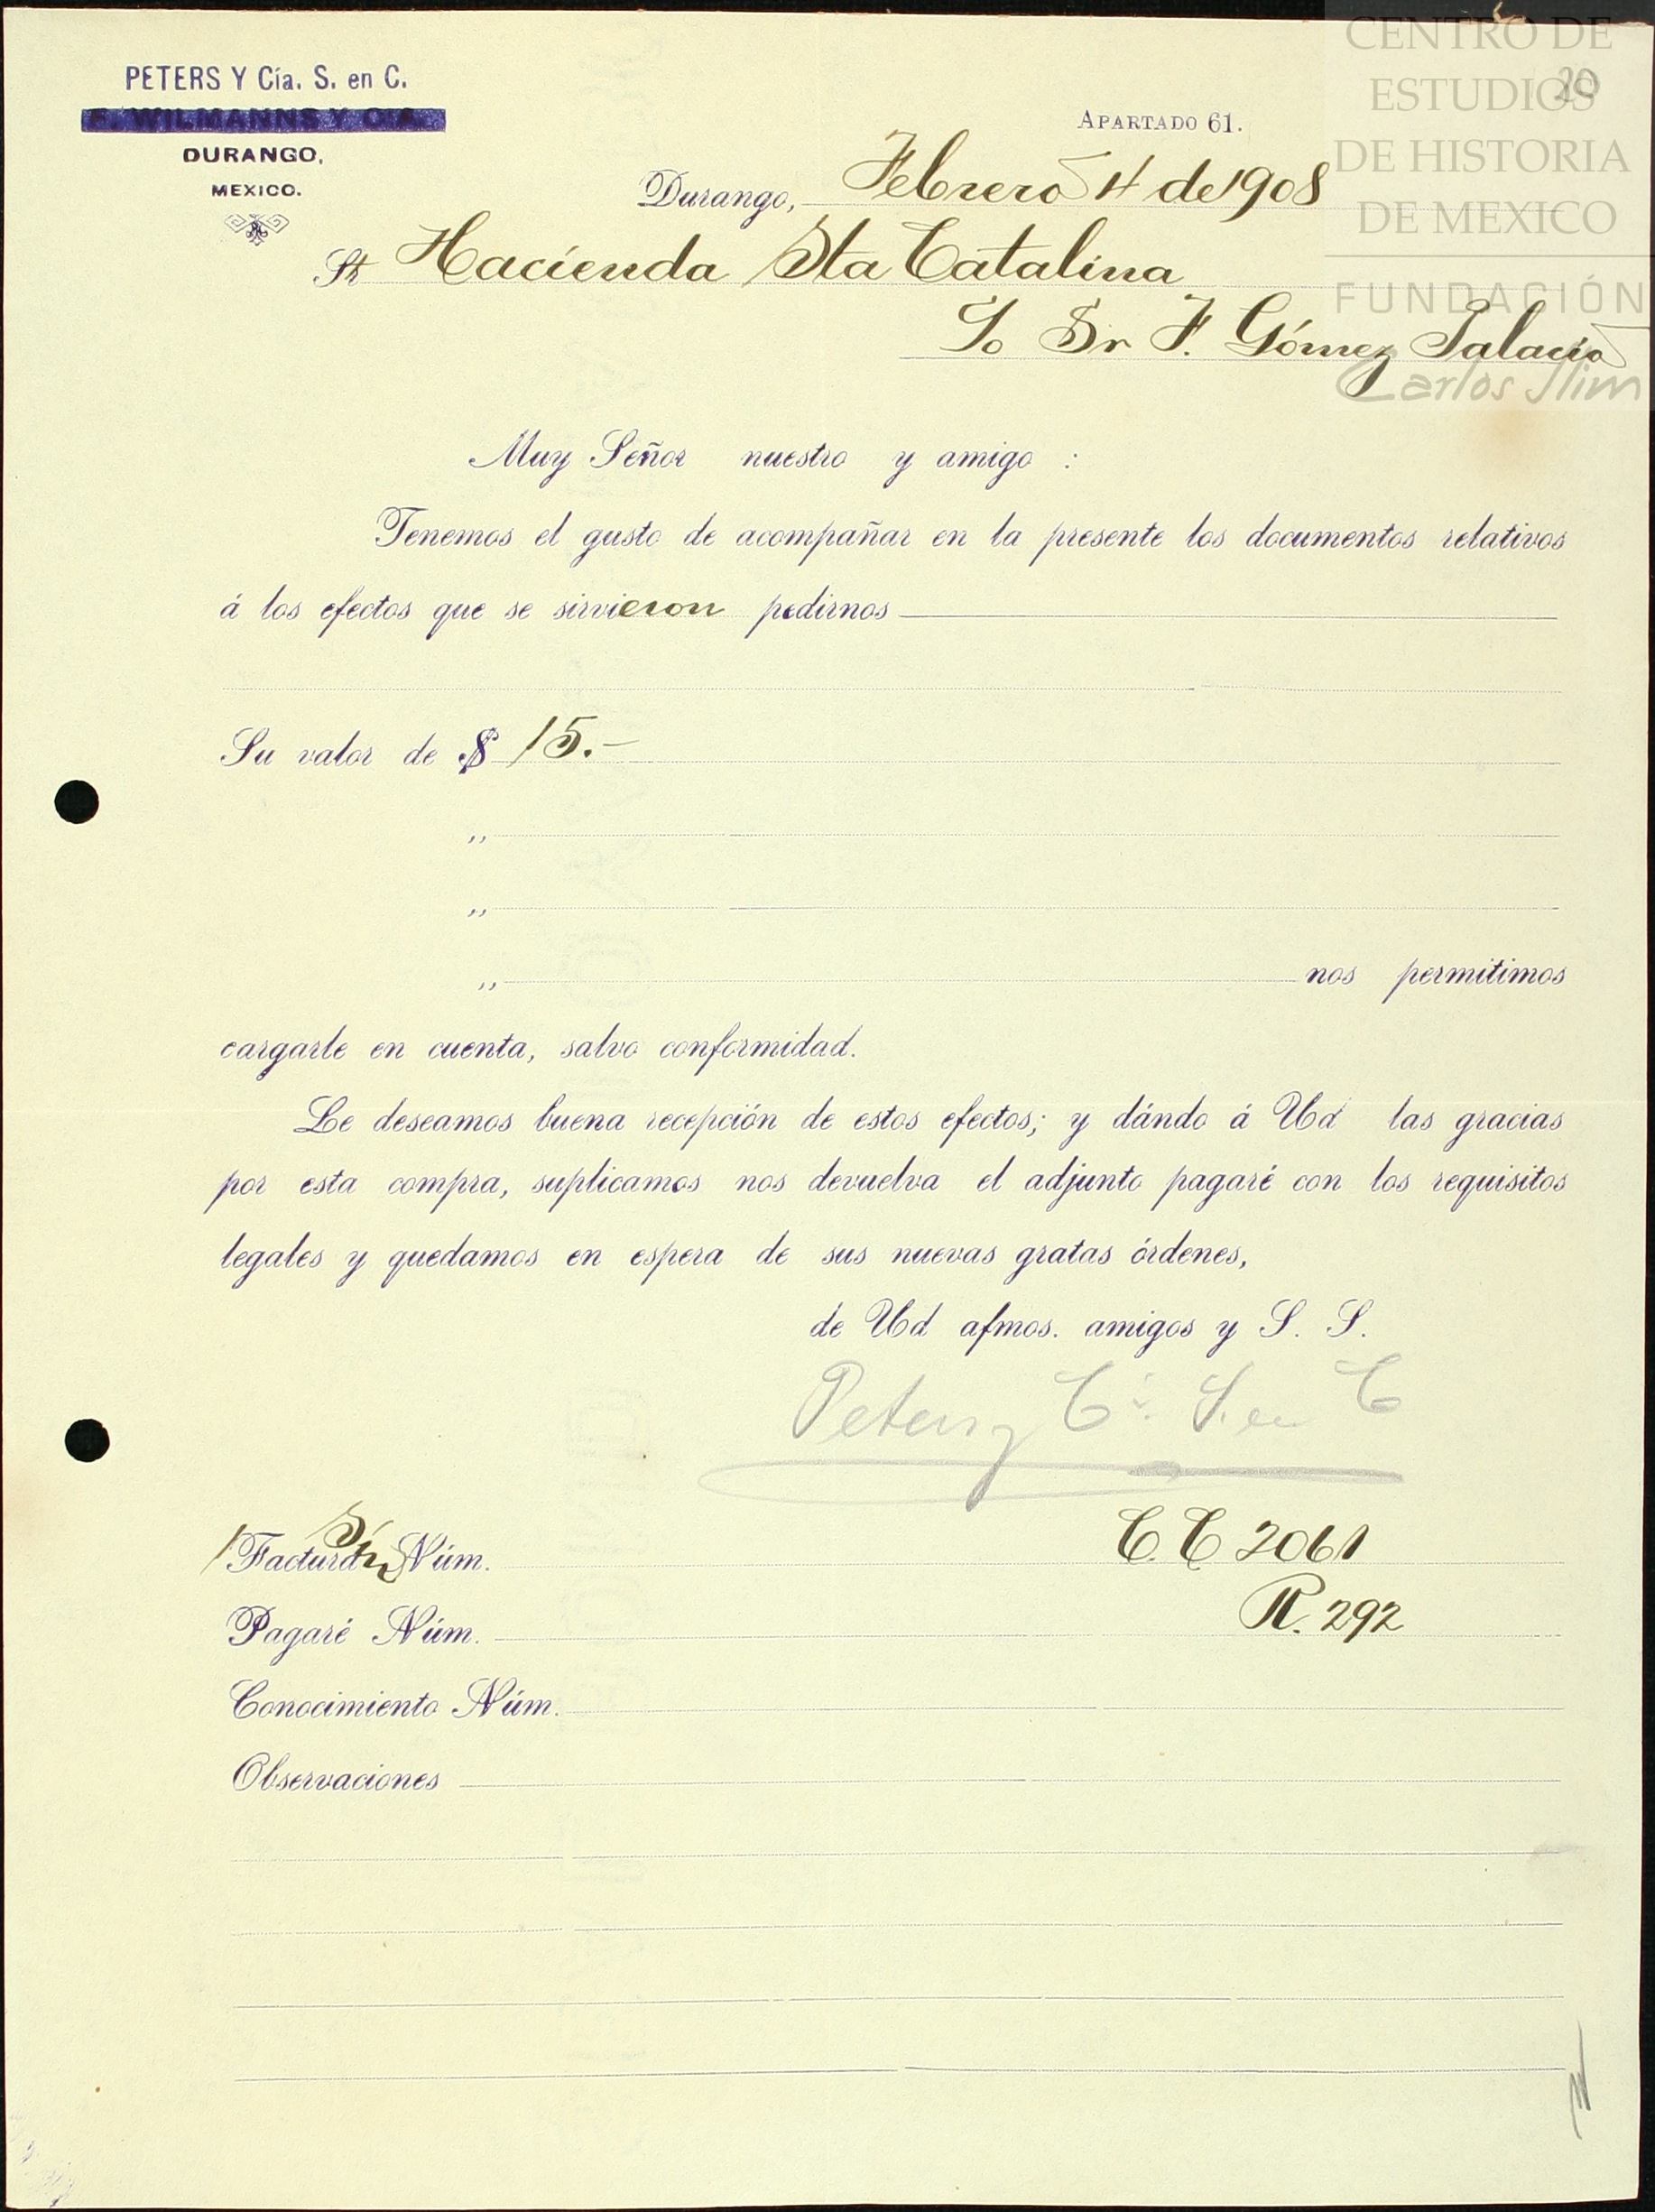 PETERS Y Cía. S. en C.
F. WILMANNS Y CIA.
DURANGO,
MEXICO.
CENTRO DE
ESTUDIOS
DE HISTORIA
DE MEXICO
FUNDACIÓN
Carlos Slim
20
APARTADO 61.
Durango, Febrero 4 de 1908
Sr Hacienda Sta Catalina
Sr F. Gómez Palacio
Muy Señor nuestro y amigo :
Tenemos el gusto de acompañar en la presente los documentos relativos
á los efectos que se sirvieron pedirnos
Su valor de $ 15.-
,,
,,
,, nos permitimos
cargarle en cuenta, salvo conformidad.
Le deseamos buena recepción de estos efectos; y dándo á Ud las gracias
por esta compra, suplicamos nos devuelva el adjunto pagaré con los requisitos
legales y quedamos en espera de sus nuevas gratas órdenes,
de Ud afmos. amigos y S. S.
Peters y Cia. S. en C
1 Factura S/n Núm. C. C 2061
Pagaré Núm. R. 292
Conocimiento Núm.
Observaciones